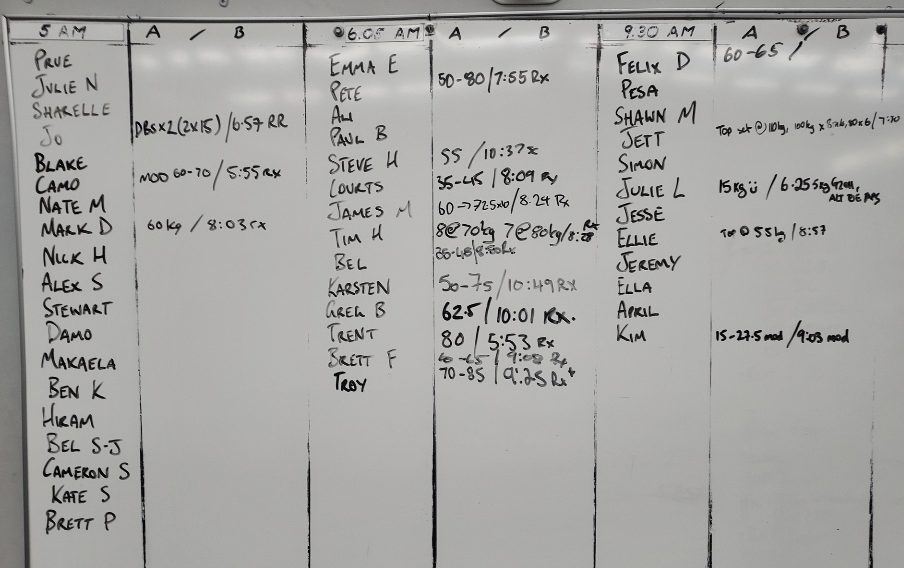 5 AM A / B
PRUE
JULIE N
SHARELLE
JO DBs x 2 (2x15) / 6:57 RR
BLAKE
CAMO MOD 60-70 / 5:55 RX
NATE M
MARK D 60kg / 8:03 rx
NICK H
ALEX S
STEWART
DAMO
MAKAELA
BEN K
HIRAM
BEL S-J
CAMERON S
KATE S
BRETT P
6.05 AM A / B
EMMA E
PETE 50-80 / 7:55 Rx
ALI
PAUL B
STEVE H 55 / 10:37
COURTS 35-45 / 8:09 Rx
JAMES M 60 → 72.5x10 / 8:24 Rx
TIM H 8@70kg 7@80kg / 8:28 Rx
BEL
KARSTEN 50-75 / 10:49 RX
GREG B 62.5 / 10:01 RX.
TRENT 80 / 5:53 Rx
BRETT F / 9:08 Rx
TROY 70-85 / 9:25 Rx+
9.30 AM A / B
FELIX D 60-65 /
PESA
SHAWN M
JETT Top set @ 110kg, 100kg / 7:30
SIMON
JULIE L 15kg ü / 6.25
JESSE
ELLIE Top @ 55kg / 8:57
JEREMY
ELLA
APRIL
KIM 15-27.5 mod / 9:03 mod